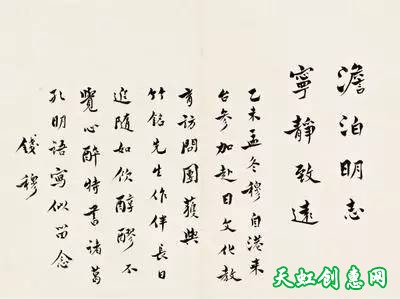 澹泊明志
寧靜致遠
乙未孟冬穆自港来
台參加赴日文化教
育訪問團獲與
竹銘先生作伴長日
追随如飲醇醪不
覺心醉特書諸葛
孔明語寫似留念
錢穆
天虹创意网